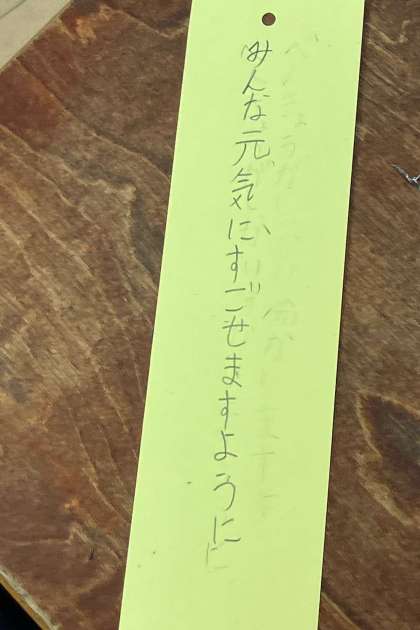 みんな元気にすごせますように